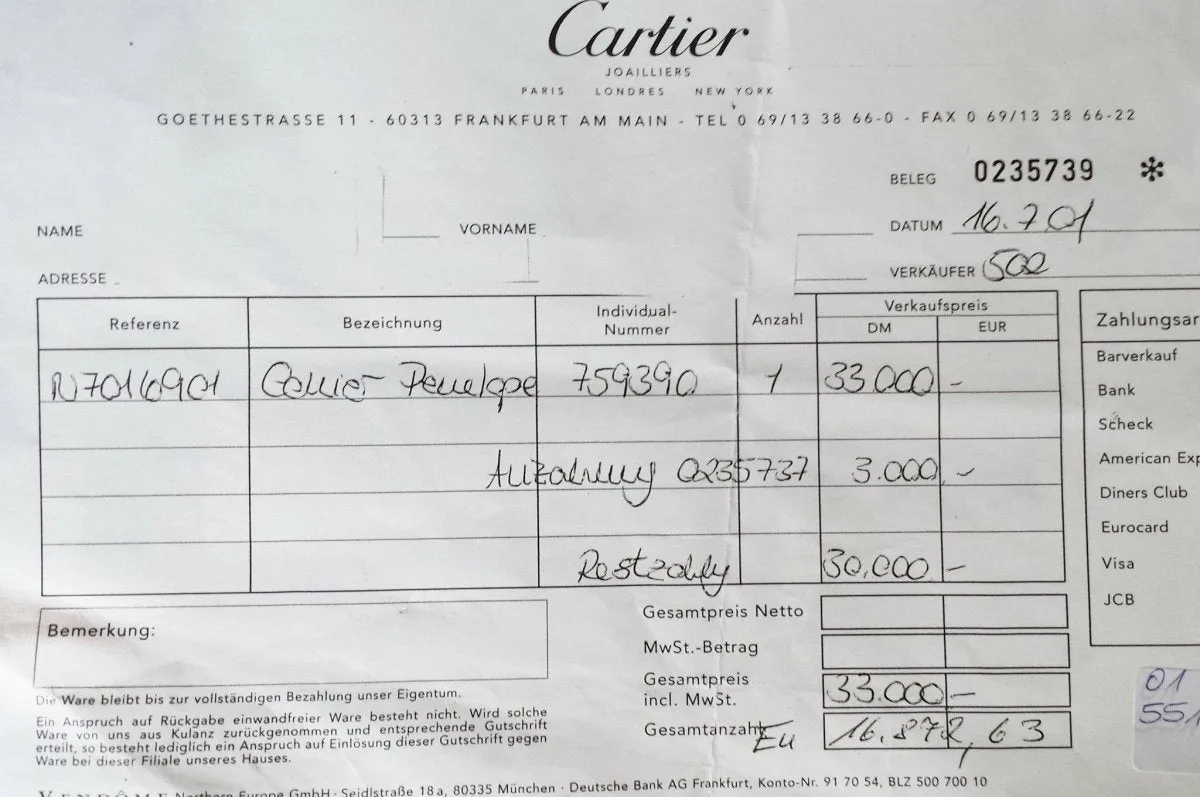 Cartier
JOAILLIERS
PARIS LONDRES NEW YORK
GOETHESTRASSE 11 - 60313 FRANKFURT AM MAIN - TEL 0 69/13 38 66-0 - FAX 0 69/13 38 66-22
BELEG 0235739 *
NAME VORNAME DATUM 16.7.01
ADRESSE VERKÄUFER 502
Referenz Bezeichnung Individual-Nummer Anzahl Verkaufspreis DM EUR
N7016901 Collier Penelope 759390 1 33.000 -
Anzahlung 0235737 3.000 -
Restzahlg 30.000 -
Zahlungsar
Barverkauf
Bank
Scheck
American Exp
Diners Club
Eurocard
Visa
JCB
Bemerkung:
Gesamtpreis Netto
MwSt.-Betrag
Gesamtpreis incl. MwSt. 33.000 -
Gesamtanzahl Eu 16.872,63
01
551
Die Ware bleibt bis zur vollständigen Bezahlung unser Eigentum.
Ein Anspruch auf Rückgabe einwandfreier Ware besteht nicht. Wird solche
Ware von uns aus Kulanz zurückgenommen und entsprechende Gutschrift
erteilt, so besteht lediglich ein Anspruch auf Einlösung dieser Gutschrift gegen
Ware bei dieser Filiale unseres Hauses.
VENDÔME Northern Europe GmbH · Seidlstraße 18a, 80335 München · Deutsche Bank AG Frankfurt, Konto-Nr. 91 70 54, BLZ 500 700 10